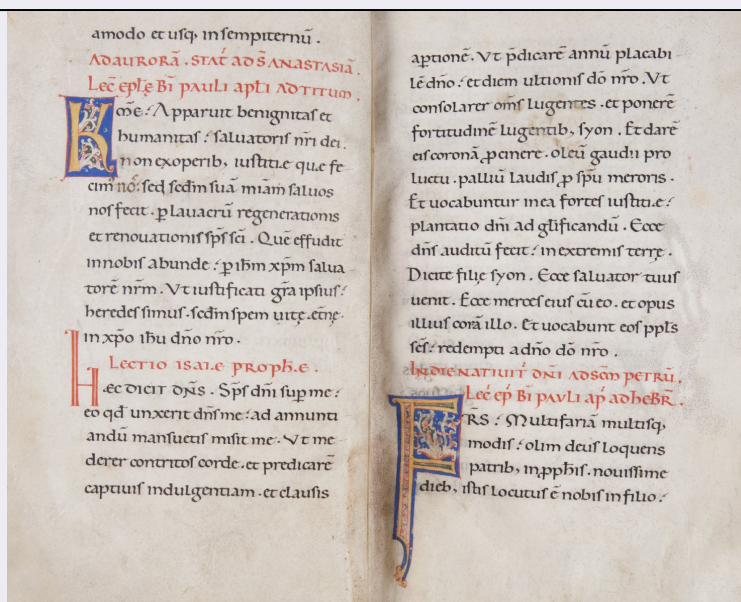 amodo et usq; in sempiternū.
AD AURORĀ. STAT̄ AD S̄ ANASTASIĀ.
Lec̄ ep̄lę Bī pauli ap̄li AD TITUM.
Kr̄m̄e: Apparuit benignitas et
humanitas: saluatoris nr̄i dei.
non ex operib; iustitiae quae fe
cim' nos: sed sc̄dm suā miam saluos
nos fecit. ꝑ lauacrū regenerationis
et renouationis sp̄s sc̄i. Quē effudit
in nobis abunde: ꝑ ih̄m xp̄m salua
torē nr̄m. Vt iustificati gr̄a ipsius:
heredes simus. sc̄dm spem uitę ęt̄nę.
in xp̄o ih̄u dn̄o nr̄o.
LECTIO ISAIAE PROPH̄AE.
HAEC DICIT DN̄S. Sp̄s dn̄i sup me:
eo qđ unxerit dn̄s me: ad annunti
andū mansuetis misit me. Vt me
derer contritos corde. et predicarē
captiuis indulgentiam. et clausis
aptionē. Vt p̄dicarē annū placabi
lē dn̄o: et diem ultionis dō nr̄o. Vt
consolarer om̄s lugentes. et ponerē
fortitudinē lugentib; syon. Et darē
eis coronā ꝓ cinere. oleū gaudii pro
luctu. palliū laudis ꝓ sp̄u meroris.
Et uocabuntur in ea fortes iustitiae:
plantatio dn̄i ad gl̄ificandū. Ecce
dn̄s auditū fecit: in extremis terrę.
Dicite filię syon. Ecce saluator tuus
uenit. Ecce merces eius cū eo. et opus
illius corā illo. Et uocabunt eos ppl̄s
sc̄s: redempti a dn̄o dō nr̄o.
IN DIE NATIUIT̄ DN̄I AD SC̄M PETRŪ.
Lec̄ ep̄ Bī PAVLI AP̄ AD HEBR̄.
FR̄S: Multifariā multisq;
modis: olim deus loquens
patrib; in pphīs. nouissime
dieb; istis locutus ē nobis in filio: